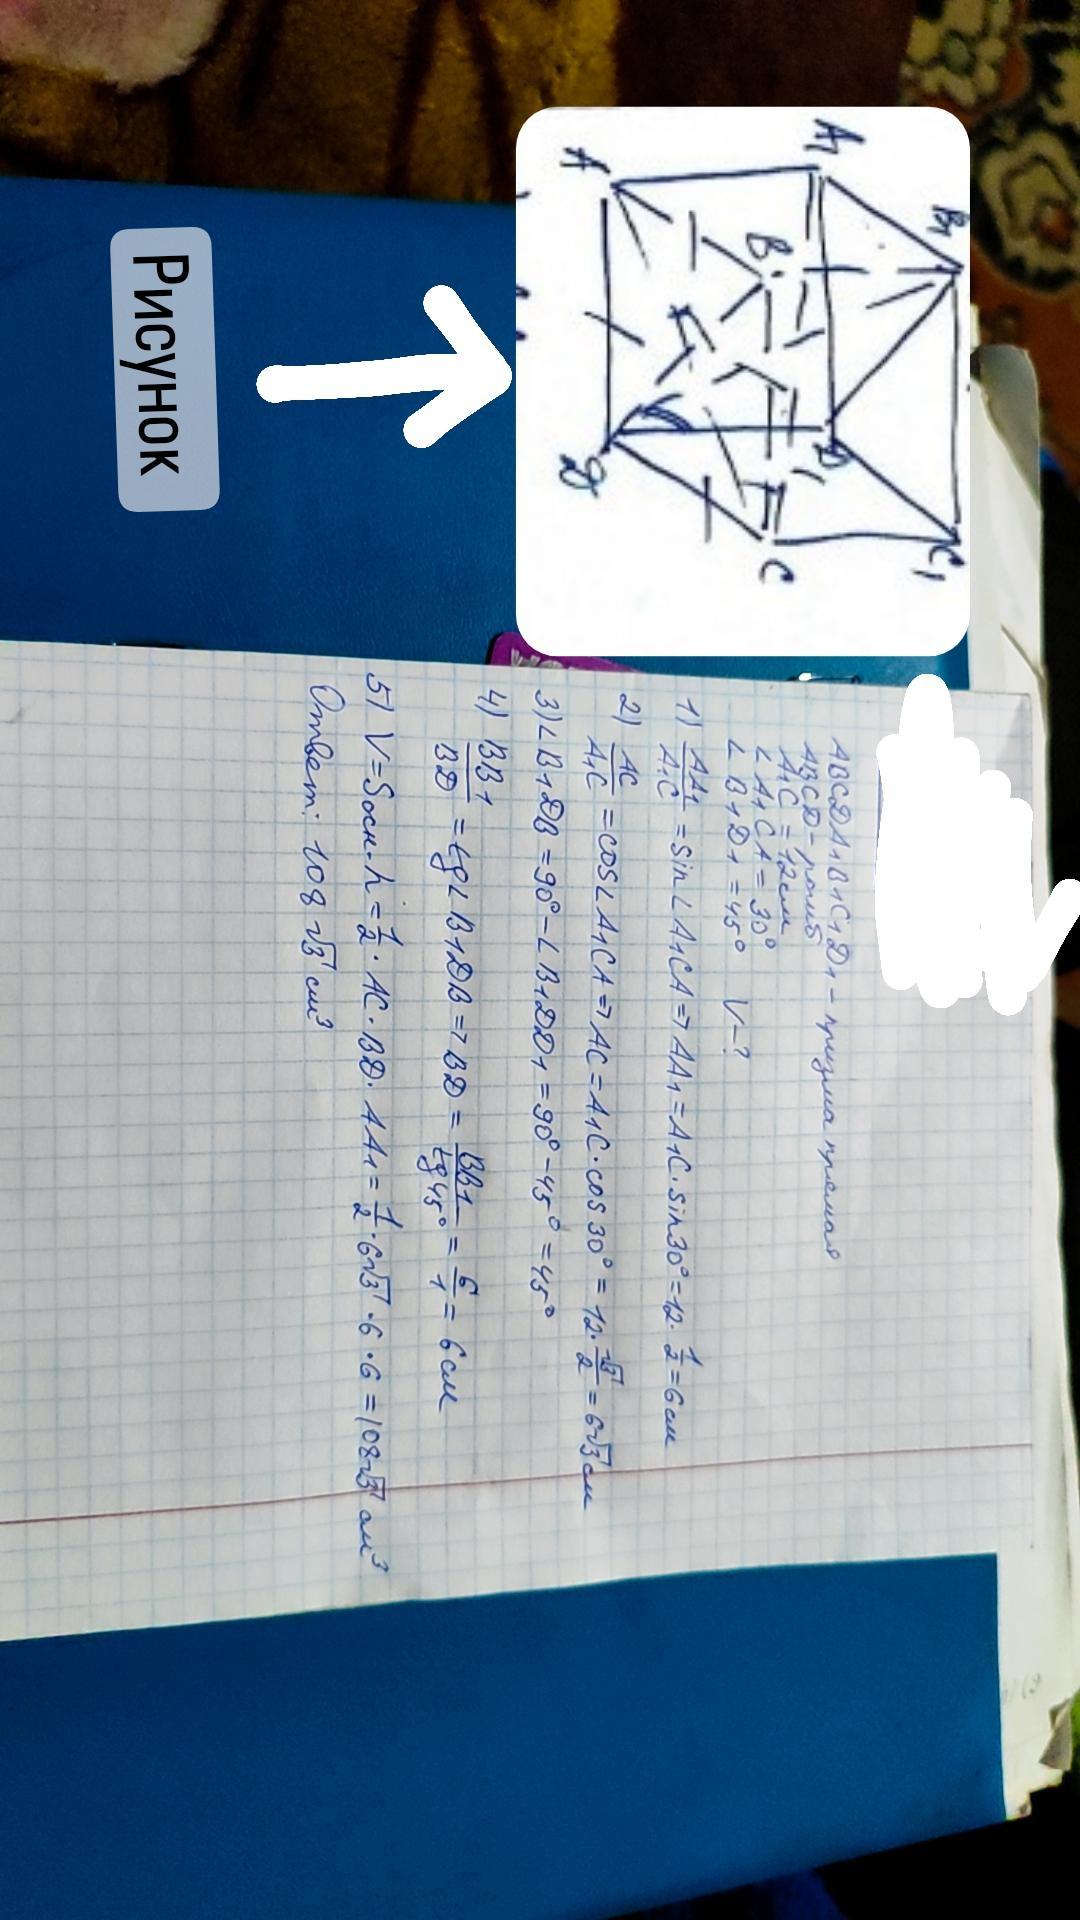 Рисунок
A1
B1
C1
A
B
D1
D
C
ABCDA1B1C1D1 - призма прямая
ABCD - ромб
A1C = 12см
∠A1CA = 30°
∠B1D1 = 45° V-?
1) AA1/A1C = sin∠A1CA => AA1 = A1C·sin30° = 12·1/2 = 6 см
2) AC/A1C = cos∠A1CA => AC = A1C·cos30° = 12·√3/2 = 6√3 см
3) ∠B1DB = 90° - ∠B1DD1 = 90° - 45° = 45°
4) BB1/BD = tg∠B1DB => BD = BB1/tg45° = 6/1 = 6 см
5) V = Sосн·h = 1/2·AC·BD·AA1 = 1/2·6√3·6·6 = 108√3 см³
Ответ: 108√3 см³